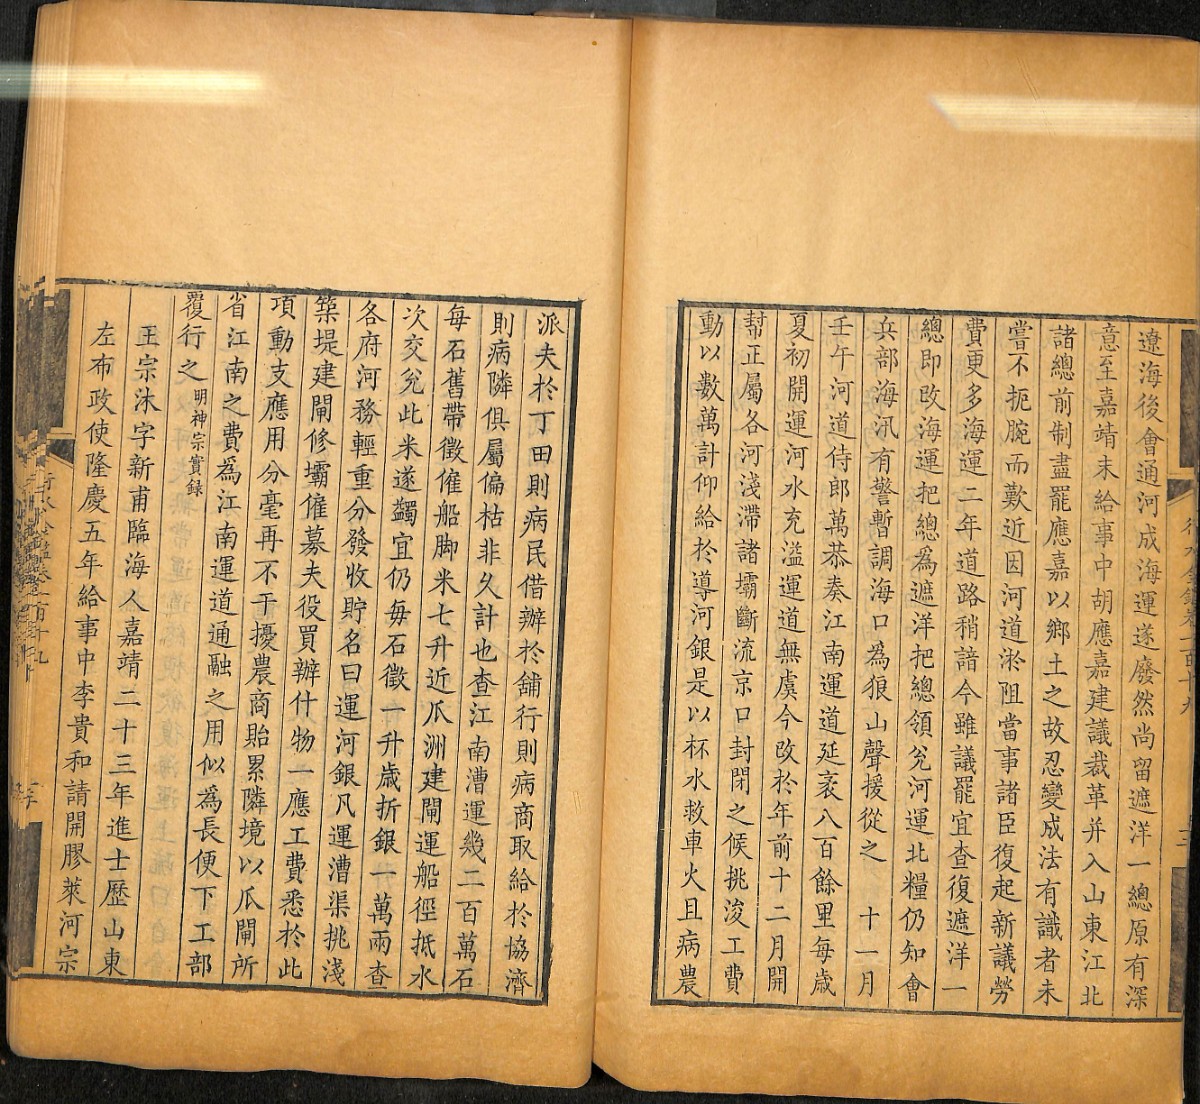 遼海後會通河成海運遂廢然尚留遮洋一總原有深
意至嘉靖末給事中胡應嘉建議裁革并入山東江北
諸總前制盡罷應嘉以鄉土之故忍變成法有識者未
嘗不扼腕而歎近因河道淤阻當事諸臣復起新議勞
費更多海運二年道路稍諳今雖議罷宜查復遮洋一
總即改海運把總為遮洋把總領兌河運北糧仍知會
兵部海汛有警暫調海口為狼山聲援從之 十一月
壬午河道侍郎萬恭奏江南運道延袤八百餘里每歲
夏初開運河水充溢運道無虞今改於年前十二月開
幇正屬各河淺滯諸壩斷流京口封閉之候挑浚工費
動以數萬計仰給於導河銀是以杯水救車火且病農
派夫於丁田則病民借辦於鋪行則病商取給於協濟
則病隣俱屬偏枯非久計也查江南漕運幾二百萬石
每石舊帶徵僱船脚米七升近瓜洲建閘運船徑抵水
次交兌此米遂蠲宜仍每石徵一升歲折銀一萬兩查
各府河務輕重分發收貯名曰運河銀凡運漕渠挑淺
築堤建閘修壩僱募夫役買辦什物一應工費悉於此
項動支應用分毫再不干擾農商貽累隣境以瓜閘所
省江南之費為江南運道通融之用似為長便下工部
覆行之明神宗實録
王宗沐字新甫臨海人嘉靖二十三年進士歷山東
左布政使隆慶五年給事中李貴和請開膠萊河宗